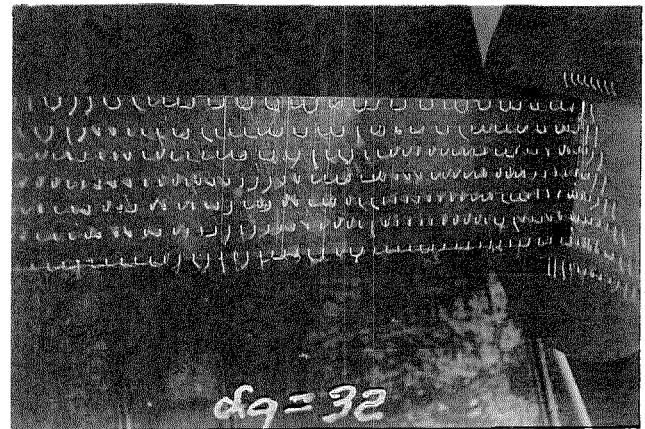 αg = 32